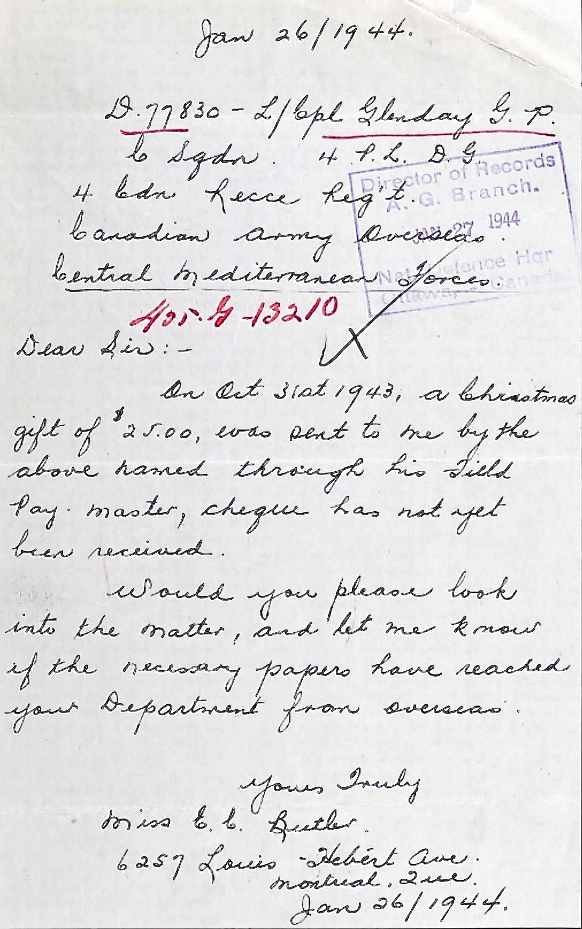 Jan 26/1944.
D.77830 - L/Cpl Glenday G. P.
C Sqdn. 4 P. L. D. G
4 Cdn Recce Reg't.
Canadian Army Overseas.
Central Mediterranean Forces
Director of Records
A. G. Branch.
JAN 27 1944
Nat. Defence Hqr
Ottawa, Canada
405-G-13210
Dear Sir:-
On Oct 31st 1943, a Christmas
gift of $25.00, was sent to me by the
above named through his Field
Pay. Master, cheque has not yet
been received.
Would you please look
into the matter, and let me know
if the necessary papers have reached
your Department from overseas.
Yours Truly
Miss E. C. Butler.
6257 Louis-Hebért Ave.
Montreal, Que.
Jan 26/1944.